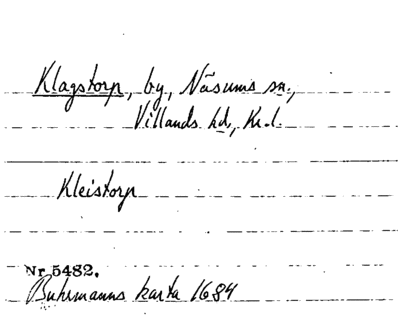 Klagstorp, by, Näsums sn.,
Villands hd, Kr.l.
Kleistorp
Nr 5482.
Buhrmanns karta 1684